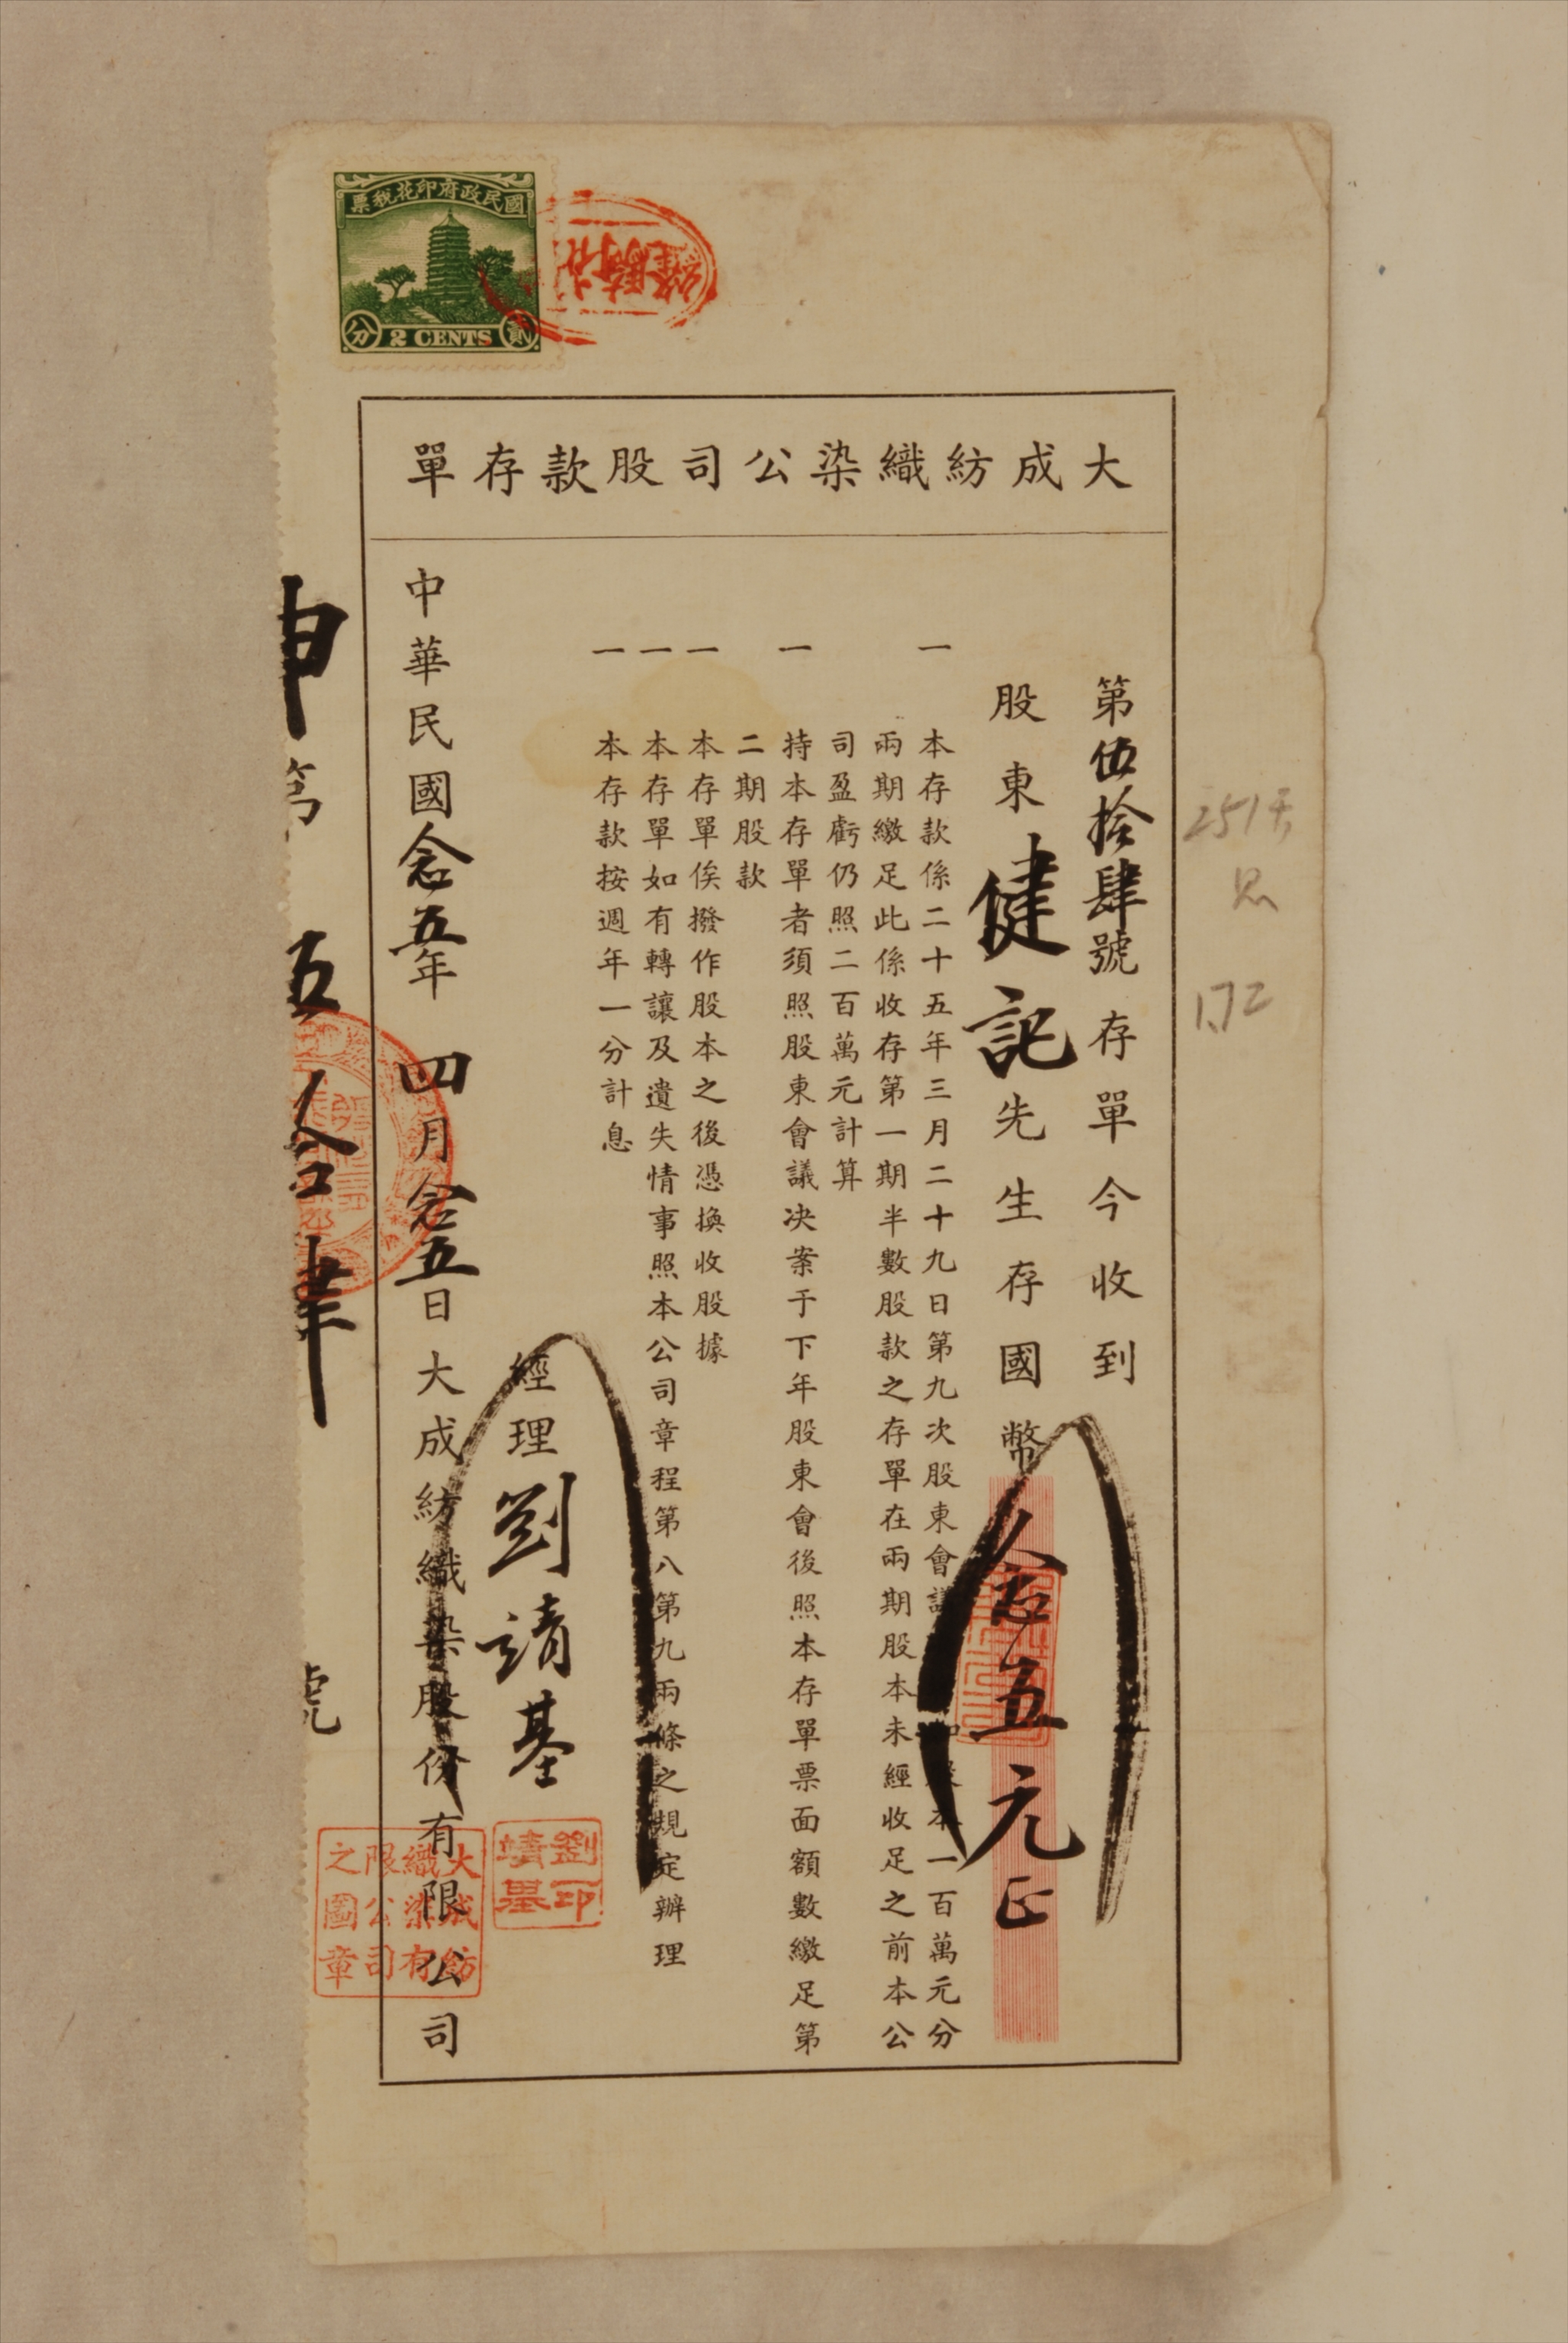 國民政府印花稅票
貳 2 CENTS 分
大成紡織染公司股款存單
第伍拾肆號存單今收到
股東健記先生存國幣念五元正
一 本存款係二十五年三月二十九日第九次股東會議 加股本一百萬元分
兩期繳足此係收存第一期半數股款之存單在兩期股本未經收足之前本公
司盈虧仍照二百萬元計算
一 持本存單者須照股東會議决案于下年股東會後照本存單票面額數繳足第
二期股款
一 本存單俟撥作股本之後憑換收股據
一 本存單如有轉讓及遺失情事照本公司章程第八第九兩條之規定辦理
一 本存款按週年一分計息
經理劉靖基
劉印靖基
中華民國念五年四月念五日大成紡織染股份有限公司
大成紡織染有限公司之圖章
申第 五拾肆 號
251天
息
1.72